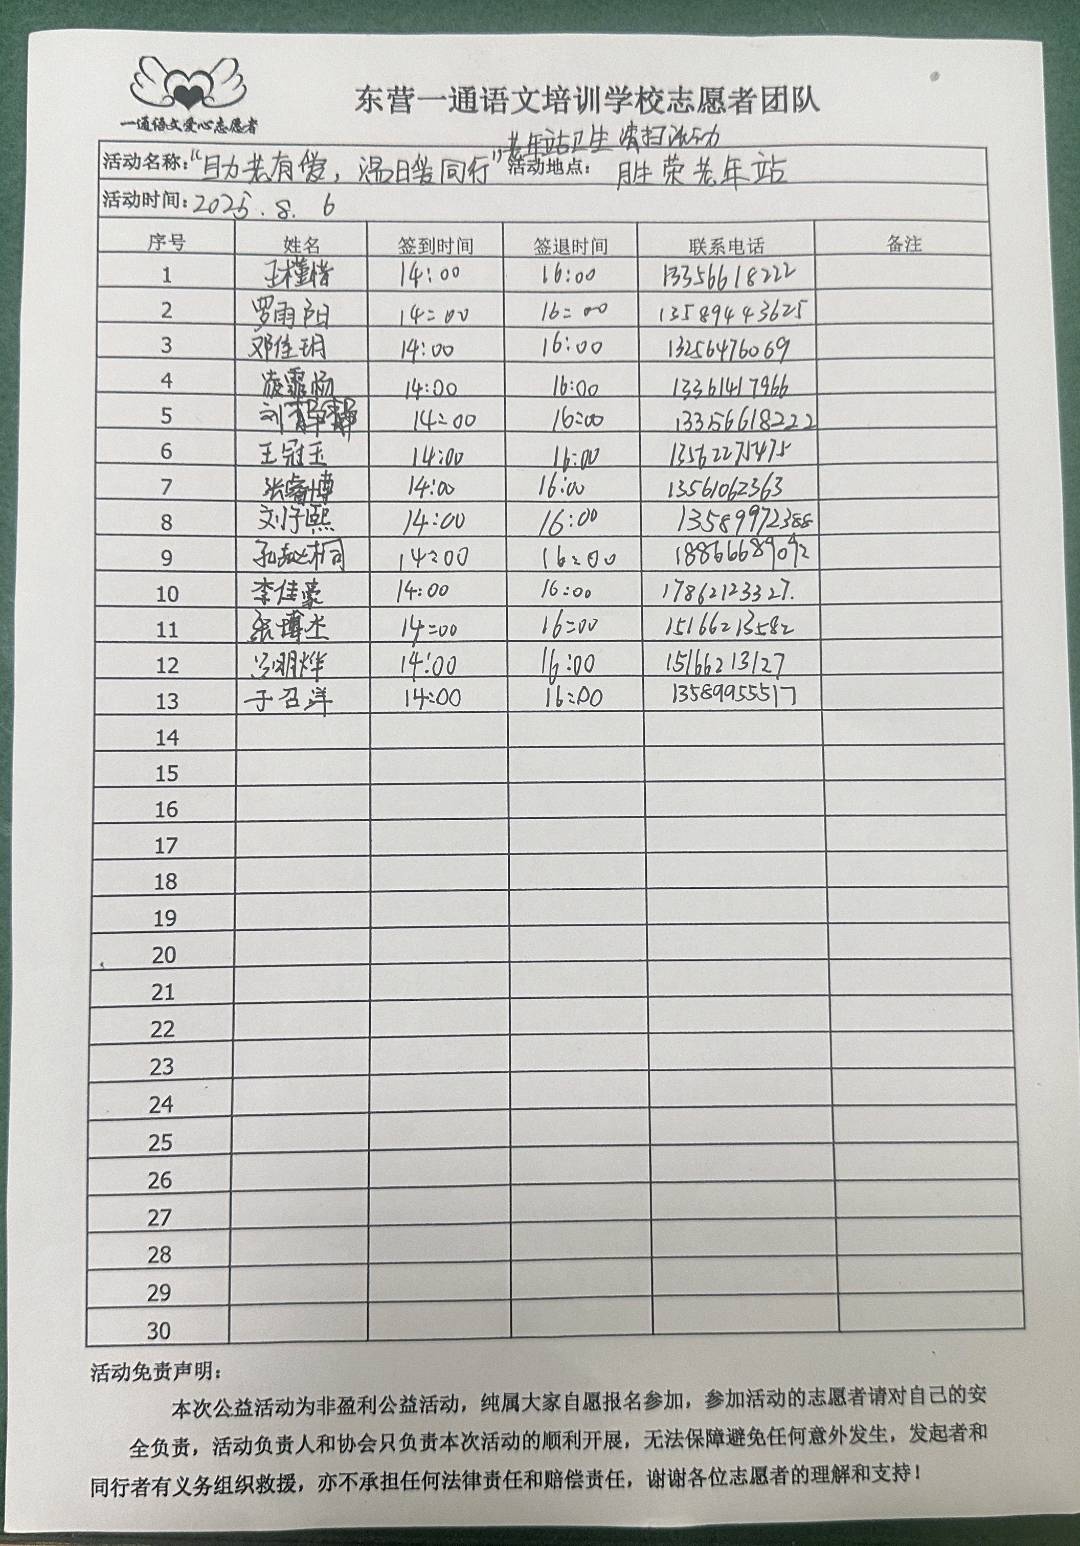 一通语文爱心志愿者
东营一通语文培训学校志愿者团队
老年站卫生清扫活动
活动名称：“助老有爱，温暖同行” 活动地点： 胜荣老年站
活动时间：2025.8.6
序号 姓名 签到时间 签退时间 联系电话 备注
1 王槿惜 14:00 16:00 13356618222
2 罗雨阳 14:00 16:00 13589443625
3 邓佳玥 14:00 16:00 13256476069
4 凌霏杨 14:00 16:00 13361417966
5 刘 14:00 16:00 13356618222
6 王冠玉 14:00 16:00 13562275475
7 张睿博 14:00 16:00 13561062363
8 刘仔熙 14:00 16:00 13589972388
9 桐 14:00 16:00 18866689092
10 李佳豪 14:00 16:00 17862123327.
11 张博丞 14:00 16:00 15166213582
12 冯明烨 14:00 16:00 15166213127
13 于召洋 14:00 16:00 13589955517
14
15
16
17
18
19
20
21
22
23
24
25
26
27
28
29
30
活动免责声明：
本次公益活动为非盈利公益活动，纯属大家自愿报名参加，参加活动的志愿者请对自己的安
全负责，活动负责人和协会只负责本次活动的顺利开展，无法保障避免任何意外发生，发起者和
同行者有义务组织救援，亦不承担任何法律责任和赔偿责任，谢谢各位志愿者的理解和支持！